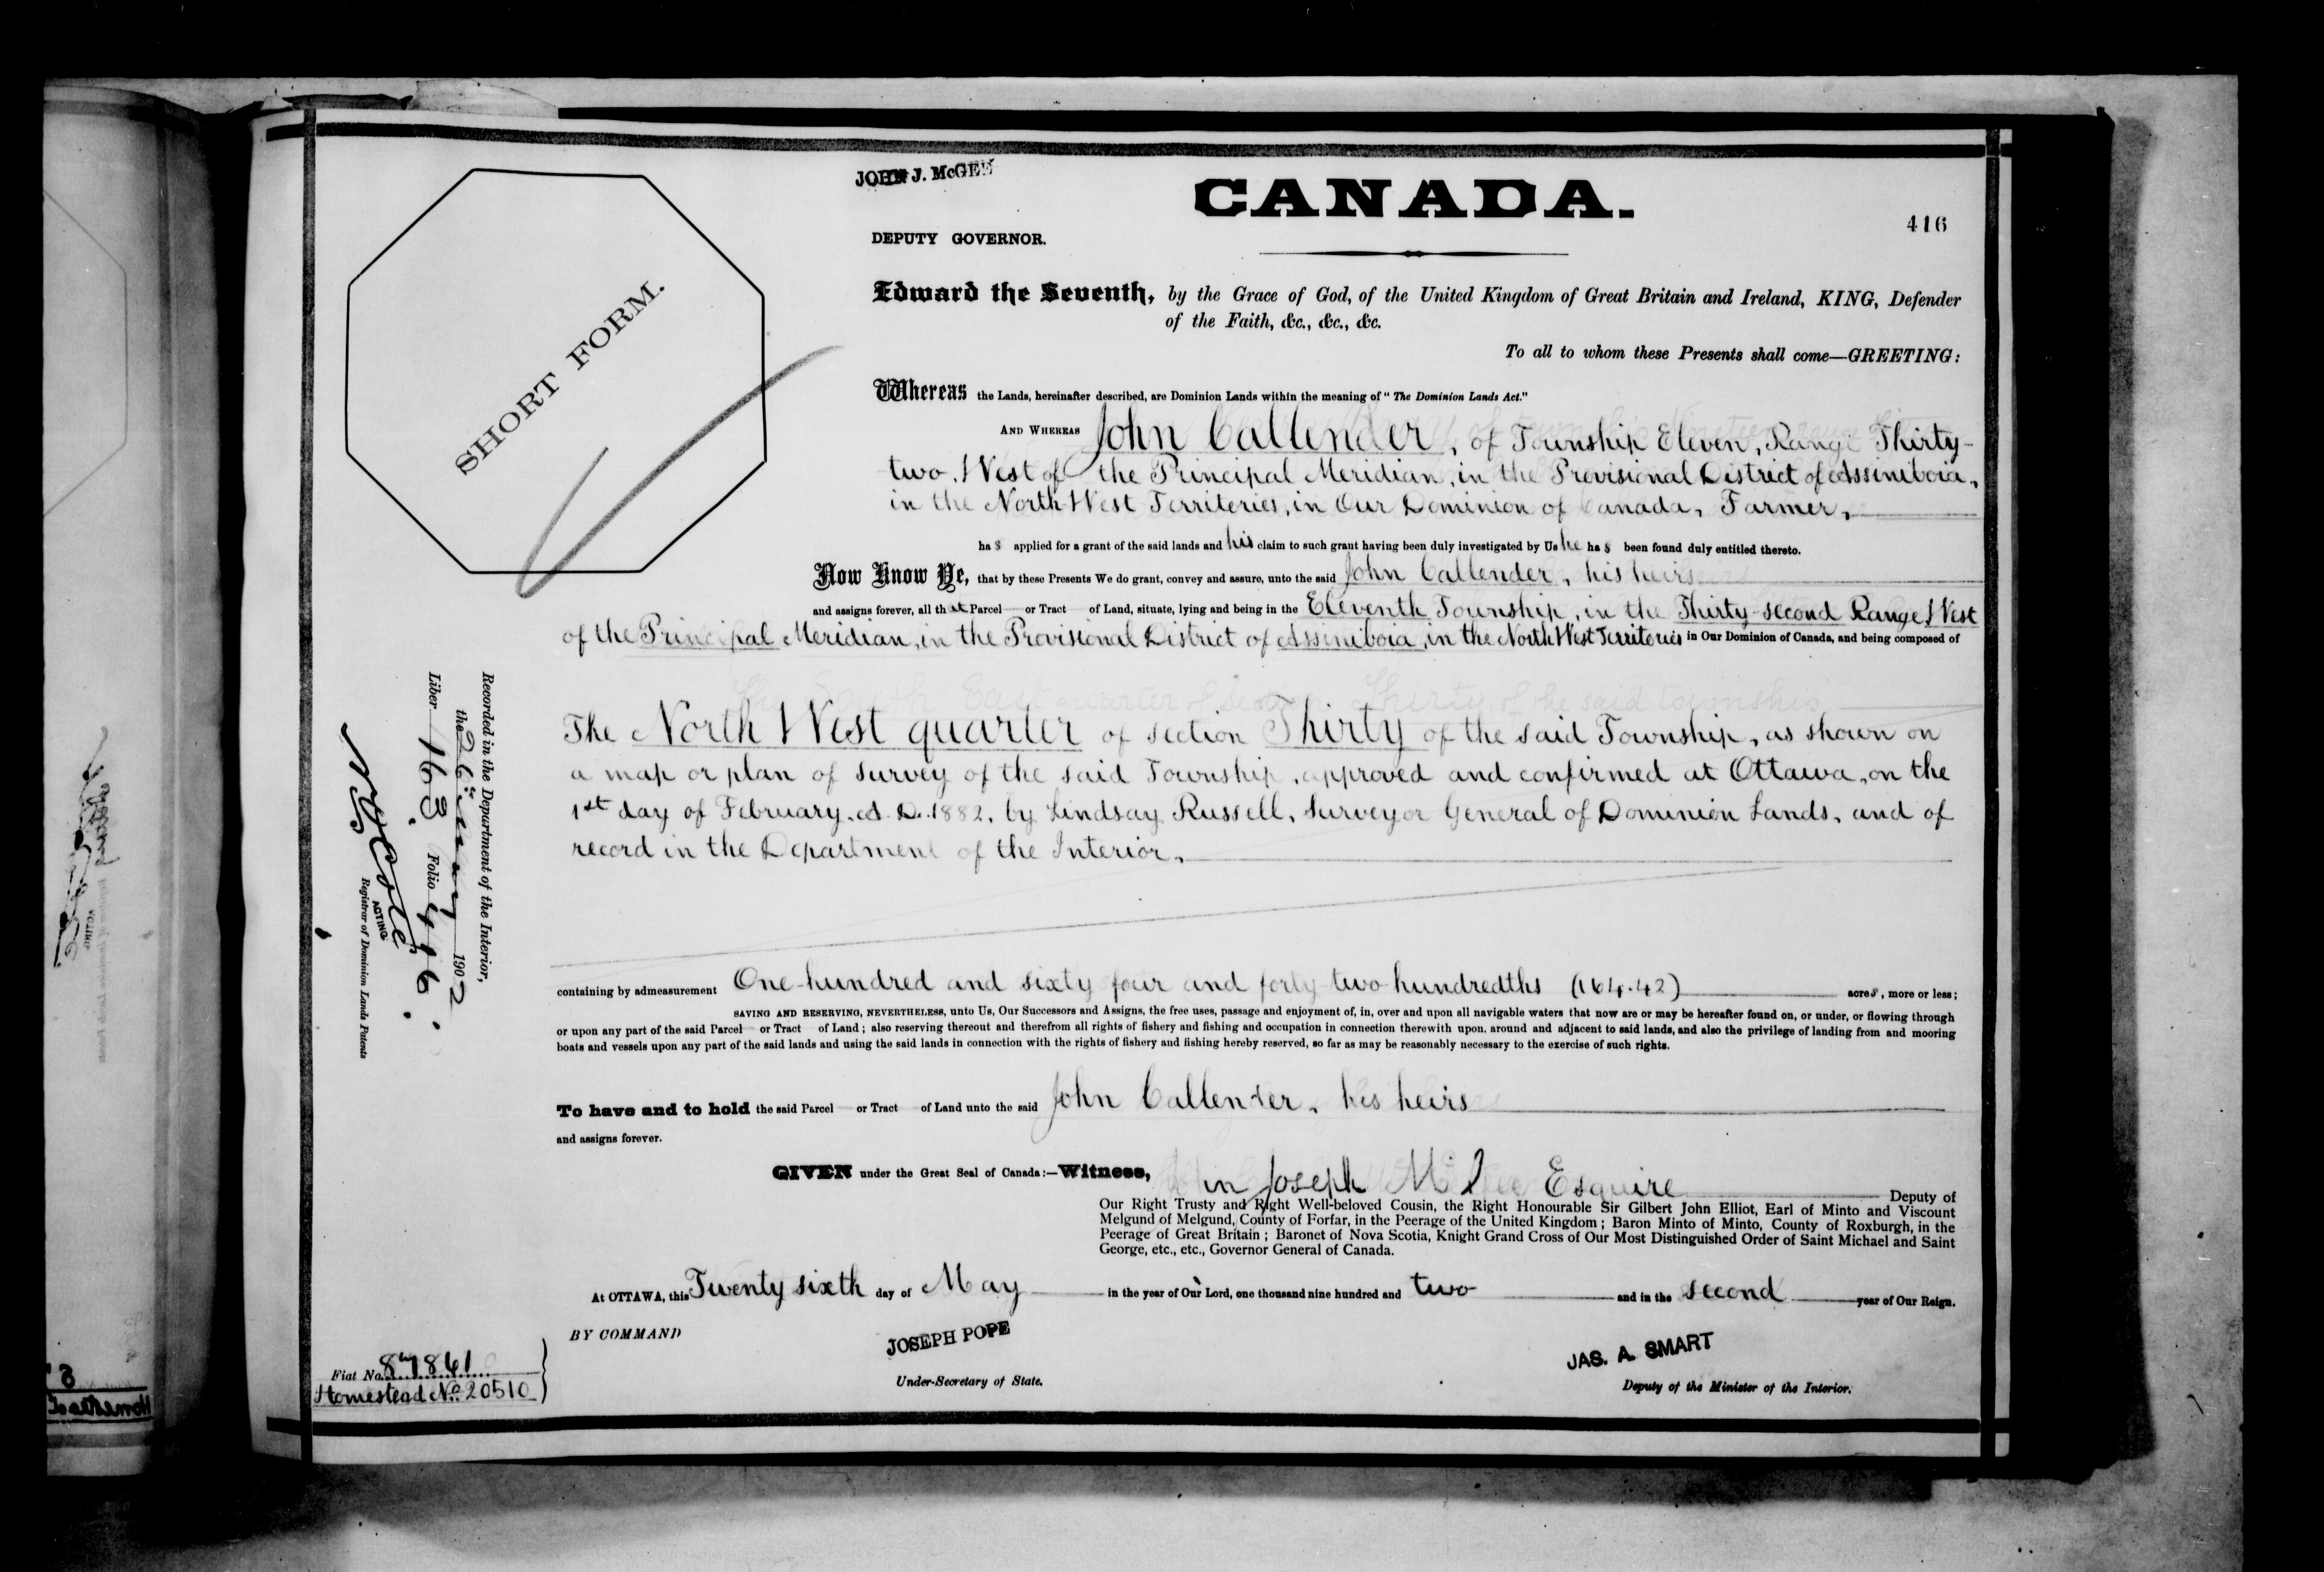 JOHN J. McGEE
CANADA.
416
DEPUTY GOVERNOR.
SHORT FORM.
Edward the Seventh, by the Grace of God, of the United Kingdom of Great Britain and Ireland, KING, Defender
of the Faith, &c., &c., &c.
To all to whom these Presents shall come—GREETING:
Whereas the Lands, hereinafter described, are Dominion Lands within the meaning of "The Dominion Lands Act."
AND WHEREAS John Callender, of Township Eleven, Range Thirty-
two, West of the Principal Meridian, in the Provisional District of Assiniboia,
in the North West Territories, in Our Dominion of Canada, Farmer,
has applied for a grant of the said lands and his claim to such grant having been duly investigated by Us he has been found duly entitled thereto.
Now Know Ye, that by these Presents We do grant, convey and assure, unto the said John Callender, his heirs
and assigns forever, all that Parcel or Tract of Land, situate, lying and being in the Eleventh Township, in the Thirty-second Range West
of the Principal Meridian, in the Provisional District of Assiniboia, in the North West Territories in Our Dominion of Canada, and being composed of
The North West quarter of section Thirty of the said Township, as shown on
a map or plan of survey of the said Township, approved and confirmed at Ottawa, on the
1st day of February, A.D. 1882, by Lindsay Russell, Surveyor General of Dominion Lands, and of
record in the Department of the Interior.
Recorded in the Department of the Interior,
the 26th May 1902
Liber 163 Folio 416.
ACTING
Registrar of Dominion Lands Patents
containing by admeasurement One hundred and sixty four and forty two hundredths (164.42) acres, more or less;
SAVING AND RESERVING, NEVERTHELESS, unto Us, Our Successors and Assigns, the free uses, passage and enjoyment of, in, over and upon all navigable waters that now are or may be hereafter found on, or under, or flowing through
or upon any part of the said Parcel or Tract of Land; also reserving thereout and therefrom all rights of fishery and fishing and occupation in connection therewith upon, around and adjacent to said lands, and also the privilege of landing from and mooring
boats and vessels upon any part of the said lands and using the said lands in connection with the rights of fishery and fishing hereby reserved, so far as may be reasonably necessary to the exercise of such rights.
To have and to hold the said Parcel or Tract of Land unto the said John Callender, his heirs
and assigns forever.
GIVEN under the Great Seal of Canada:—Witness, John Joseph McGee Esquire Deputy of
Our Right Trusty and Right Well-beloved Cousin, the Right Honourable Sir Gilbert John Elliot, Earl of Minto and Viscount
Melgund of Melgund, County of Forfar, in the Peerage of the United Kingdom; Baron Minto of Minto, County of Roxburgh, in the
Peerage of Great Britain; Baronet of Nova Scotia, Knight Grand Cross of Our Most Distinguished Order of Saint Michael and Saint
George, etc., etc., Governor General of Canada.
At OTTAWA, this Twenty sixth day of May in the year of Our Lord, one thousand nine hundred and two and in the second year of Our Reign.
BY COMMAND
JOSEPH POPE
Under-Secretary of State.
JAS. A. SMART
Deputy of the Minister of the Interior.
Fiat No. 87861
Homestead No. 20510